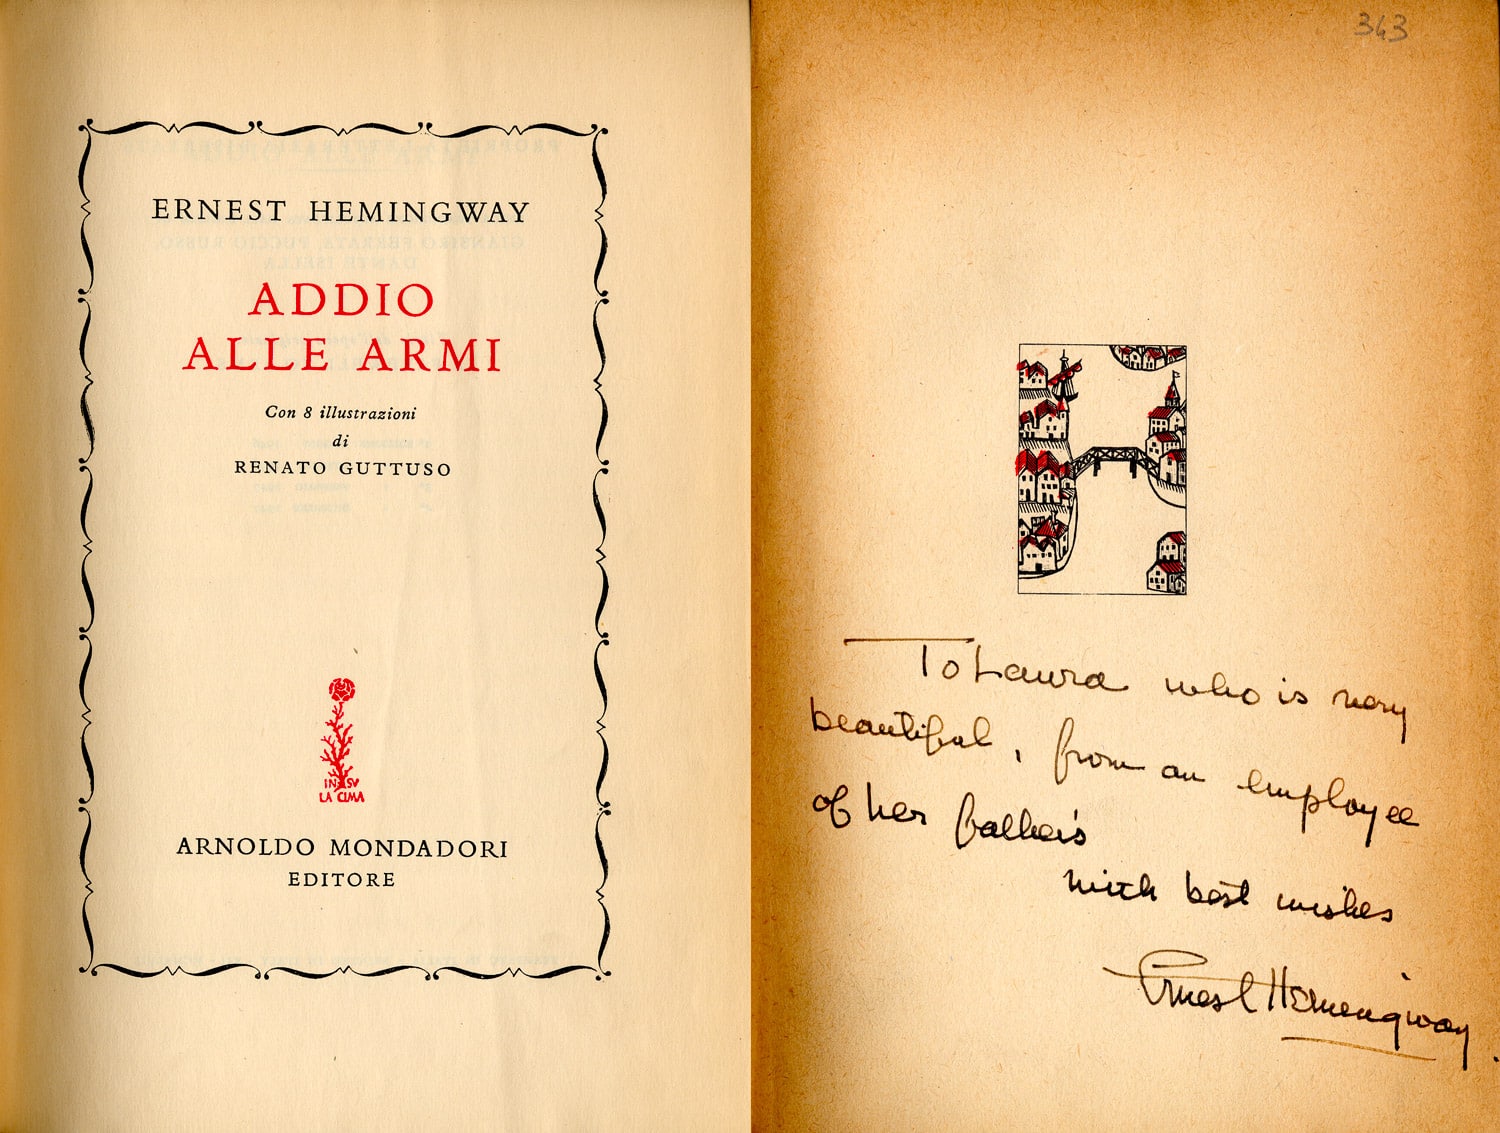 ERNEST HEMINGWAY
ADDIO
ALLE ARMI
Con 8 illustrazioni
di
RENATO GUTTUSO
IN SV
LA CIMA
ARNOLDO MONDADORI
EDITORE
343
To Laura who is very
beautiful, from an employee
of her father's
with best wishes
Ernest Hemingway